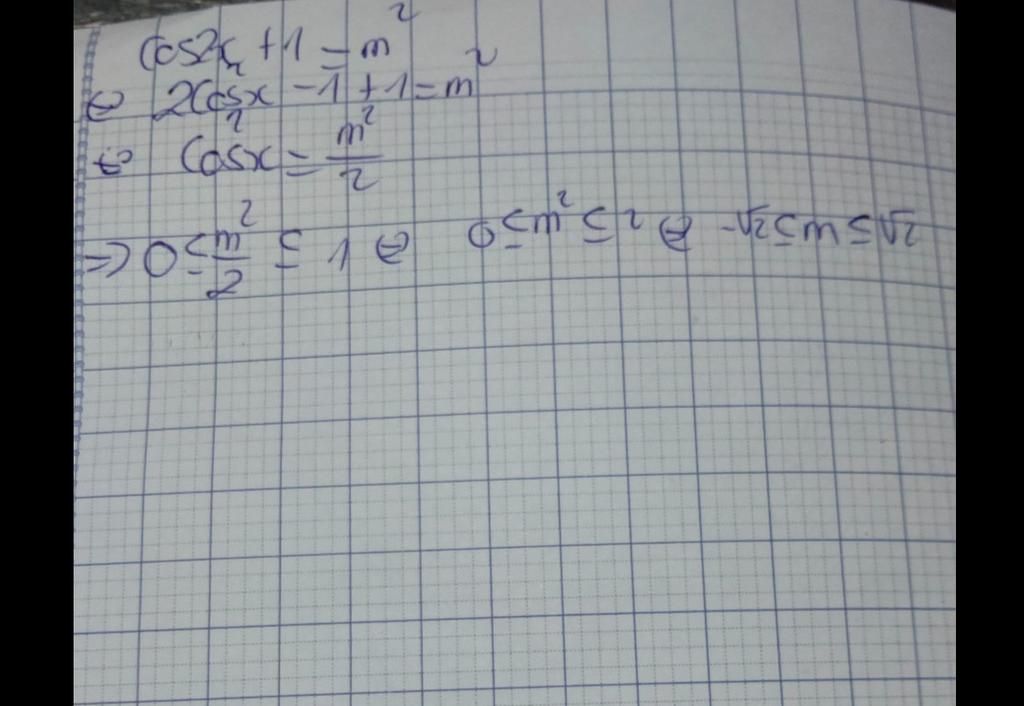 cos2x + 1 = m²
⇔ 2cos²x - 1 + 1 = m²
⇔ cos²x = m²/2
⇒ 0 ≤ m²/2 ≤ 1 ⇔ 0 ≤ m² ≤ 2 ⇔ -√2 ≤ m ≤ √2